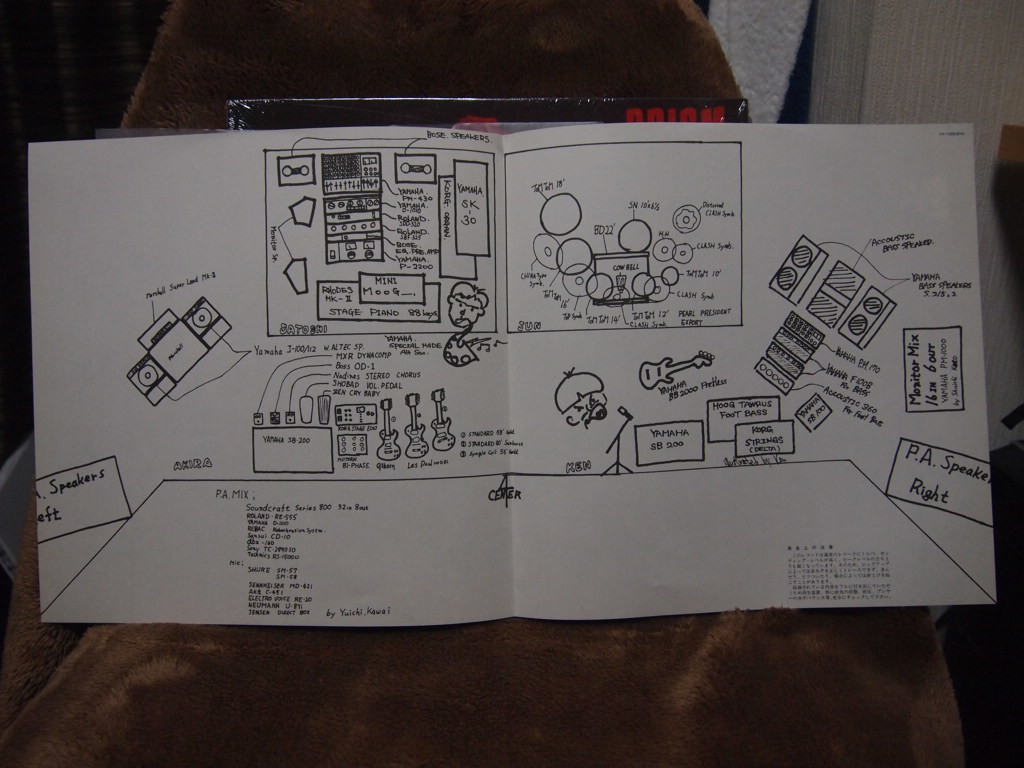 PRISM
BOSE SPEAKERS.
YAMAHA.
PM-430
YAMAHA.
D-1010
ROLAND.
ROLAND.
BOSE.
EQ. PRE. AMP
YAMAHA
P-2200
KORG ORGAN.
YAMAHA
SK-
30
Monitor Sp.
RHODES
MK-II
MINI
MOOG
STAGE PIANO 88 keys
SATOSHI
YAMAHA.
SPECIAL MADE
TOMTOM 18'
SN 10"x6½
Distorted
CLASH Symb.
BD22'
H.H
CLASH Symb.
CHINA Type
Symb.
COW BELL
TOMTOM 10'
TOMTOM 16'
CLASH Symb.
Top Symb
TOMTOM 14'
TOMTOM 12'
CLASH Symb.
PEARL PRESIDENT
EXPORT
JUN
Marshall Super Lead MK-II
Marshall
Yamaha J-100/112 W. ALTEC SP.
MXR DYNACOMP
Boss OD-1
Nadines STEREO CHORUS
SHOBAD VOL. PEDAL
ZEN CRY BABY
YAMAHA SB-200
KORG STAGE ECHO
MUTRON
BI-PHASE
Gibson
Les Paul
① STANDARD 58' Gold
② STANDARD 60' Sunburst
③ Single Coil 55' Gold
AKIRA
ACCOUSTIC
BASS SPEAKER.
YAMAHA
BASS SPEAKERS
YAMAHA PM.170
YAMAHA F100B
For BASS
ACCOUSTIC 360
For Foot Bass
YAMAHA
SB 100
Monitor Mix
16 in 6 OUT
YAMAHA PM-1000
YAMAHA
SB 2000 Fretless
MOOG TAWRUS
FOOT BASS
YAMAHA
SB 200
KORG
STRINGS
(DELTA)
KEN
P.A. Speaker
Right
Speakers
eft
CENTER
P.A. MIX;
Soundcraft Series 800 32 in 8 out
ROLAND-RE-555
YAMAHA D-1010
REBAC Reberbration System.
Sansui CD-10
dbx-160
Technics RS-1500U
Mic;
SHURE SM-57
SM-58
SENNHEISER MD-421
AKG C-451
ELECTRO VOICE RE-20
NEUMANN U-87i
JENSEN DIRECT BOX
by Yuichi. Kawai